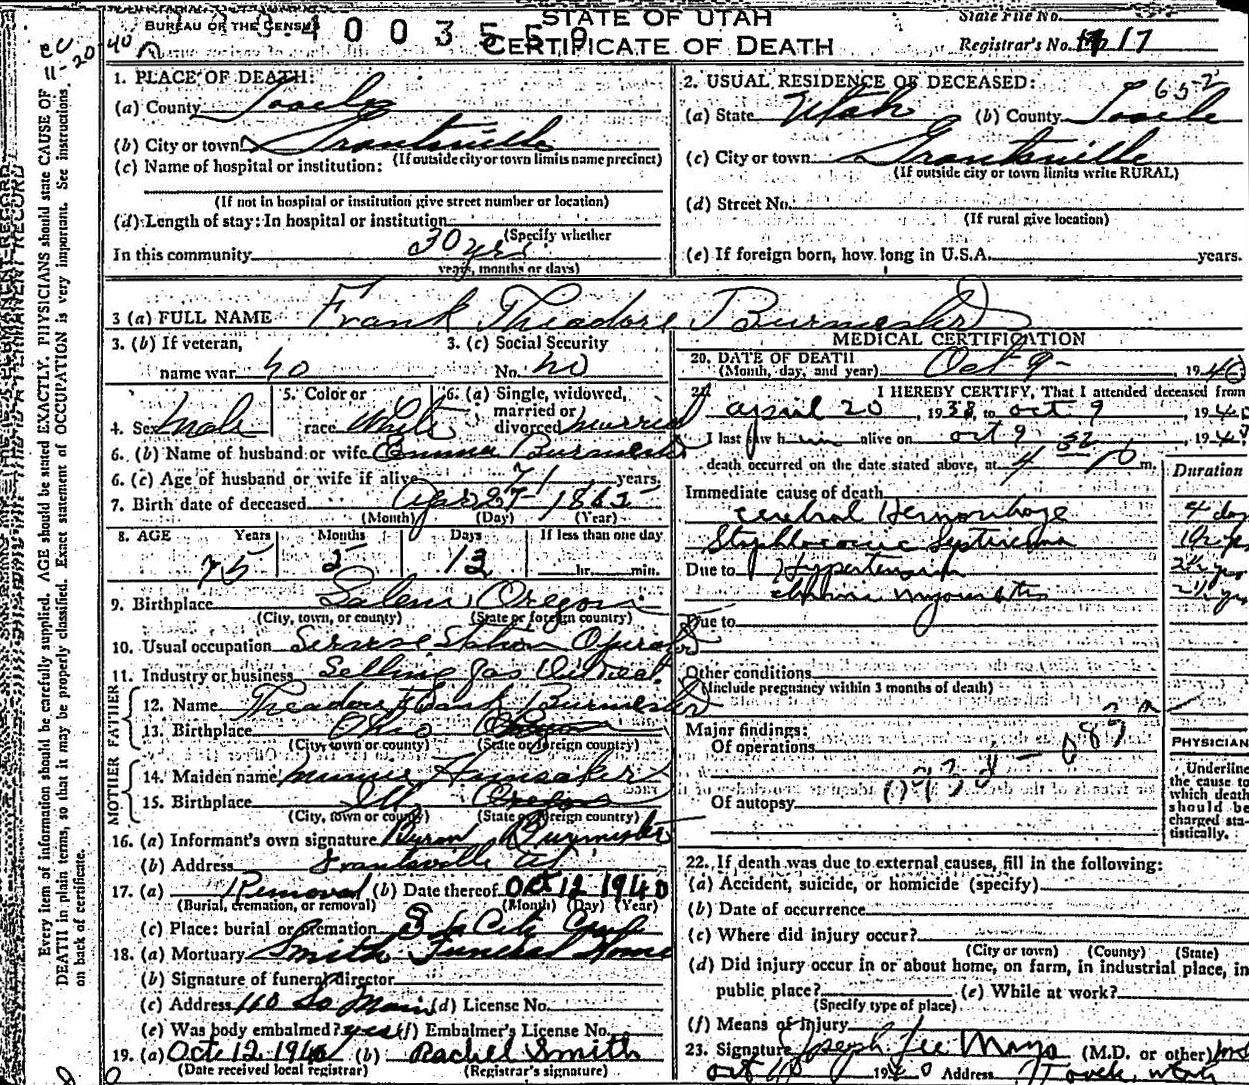 BUREAU OF THE CENSUS
STATE OF UTAH
CERTIFICATE OF DEATH
State File No.
Registrar's No. 17
1. PLACE OF DEATH:
(a) County Tooele
(b) City or town Grantsville
(If outside city or town limits name precinct)
(c) Name of hospital or institution:
(If not in hospital or institution give street number or location)
(d) Length of stay: In hospital or institution
(Specify whether
In this community 30 yrs
years, months or days)
2. USUAL RESIDENCE OF DECEASED:
65-2
(a) State Utah (b) County Tooele
(c) City or town Grantsville
(If outside city or town limits write RURAL)
(d) Street No.
(If rural give location)
(e) If foreign born, how long in U.S.A. years.
3 (a) FULL NAME Frank Theodore Burmester
3. (b) If veteran, name war no
3. (c) Social Security No. no
4. Sex Male
5. Color or race White
6. (a) Single, widowed, married or divorced married
6. (b) Name of husband or wife Emma Burmester
6. (c) Age of husband or wife if alive 71 years.
7. Birth date of deceased Apr 27 1865
(Month) (Day) (Year)
8. AGE Years Months Days If less than one day
75 5 12 hr. min.
9. Birthplace Salem, Oregon
(City, town, or county) (State or foreign country)
10. Usual occupation Service Station Operator
11. Industry or business Selling Gas Oil
FATHER
12. Name Theodore Burmester
13. Birthplace Ohio Oregon
(City, town or county) (State or foreign country)
MOTHER
14. Maiden name Hunsaker
15. Birthplace Ill Oregon
(City, town or county) (State or foreign country)
16. (a) Informant's own signature Byron Burmester
(b) Address Grantsville Ut
17. (a) Removal (b) Date thereof Oct 12 1940
(Burial, cremation, or removal) (Month) (Day) (Year)
(c) Place: burial or cremation S L City
18. (a) Mortuary Smith Funeral Home
(b) Signature of funeral director
(c) Address 110 So Main (d) License No.
(e) Was body embalmed? yes (f) Embalmer's License No.
19. (a) Oct 12 1940 (b) Rachel Smith
(Date received local registrar) (Registrar's signature)
MEDICAL CERTIFICATION
20. DATE OF DEATH Oct 9 - , 1940
(Month, day, and year)
21. I HEREBY CERTIFY, That I attended deceased from
april 20 , 1938, to oct 9 , 1940
I last saw him alive on oct 9 , 1940
death occurred on the date stated above, at 4 32 P m.
Duration
Immediate cause of death
Cerebral Hemorrhage 4 days
Due to Hypertension 2½ yrs
Due to
Other conditions
(Include pregnancy within 3 months of death)
Major findings:
Of operations
Of autopsy
PHYSICIAN
Underline the cause to which death should be charged statistically.
22. If death was due to external causes, fill in the following:
(a) Accident, suicide, or homicide (specify)
(b) Date of occurrence
(c) Where did injury occur?
(City or town) (County) (State)
(d) Did injury occur in or about home, on farm, in industrial place, in
public place? (e) While at work?
(Specify type of place)
(f) Means of injury
23. Signature Joseph Lee Mayo (M.D. or other) MD
Address Tooele, Utah
Every item of information should be carefully supplied. AGE should be stated EXACTLY. PHYSICIANS should state CAUSE OF
DEATH in plain terms, so that it may be properly classified. Exact statement of OCCUPATION is very important. See instructions
on back of certificate.